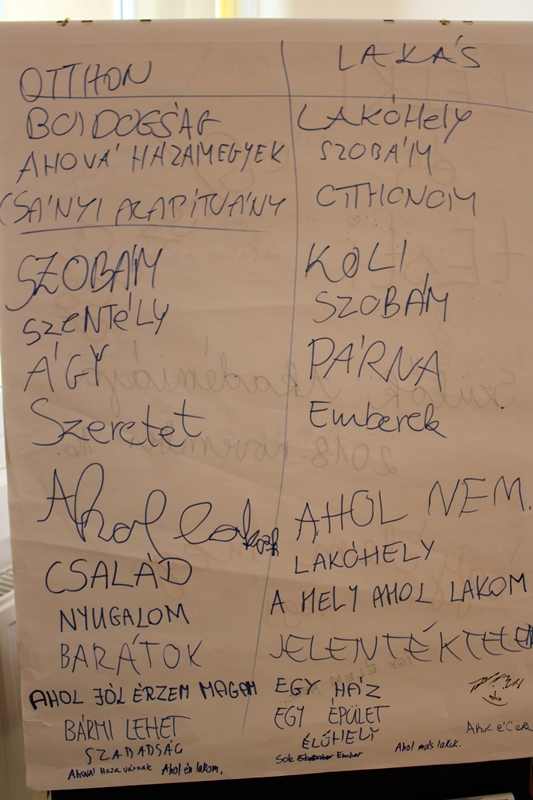 OTTHON
BOLDOGSÁG
AHOVÁ HAZAMEGYEK
CSÁNYI ALAPÍTVÁNY
SZOBÁM
SZENTÉLY
ÁGY
Szeretet
Ahol lakok
CSALÁD
NYUGALOM
BARÁTOK
AHOL JÓL ÉRZEM MAGAM
BÁRMI LEHET
SZABADSÁG
Ahová Haza várnak Ahol én lakom.
LAKÁS
LAKÓHELY
SZOBÁIM
OTTHONOM
KOLI
SZOBÁM
PÁRNA
Emberek
AHOL NEM.
LAKÓHELY
A HELY AHOL LAKOM
JELENTÉKTELEN
EGY HÁZ
EGY ÉPÜLET
ÉLŐHELY
Sok Ember
Ahol más lakik.